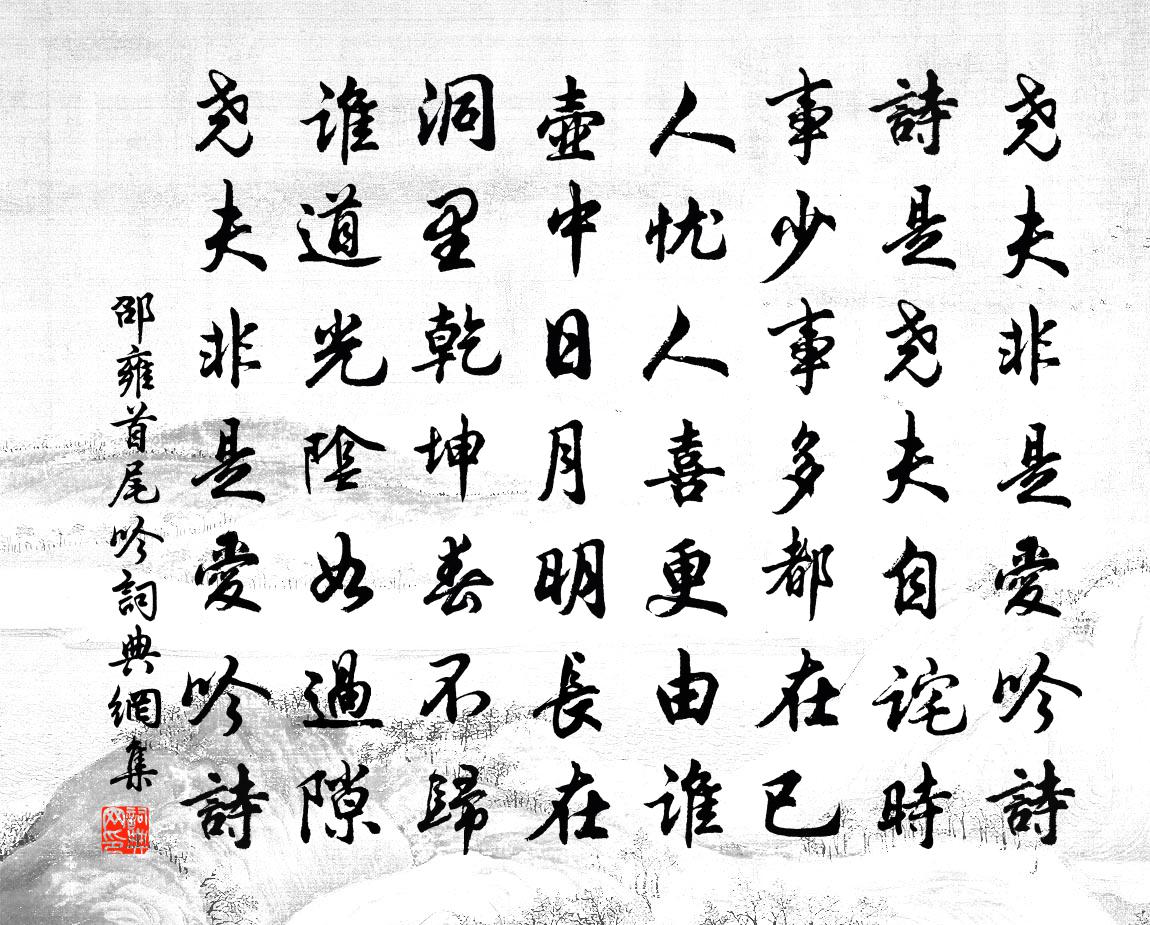 尧夫非是愛吟詩
詩是尧夫自詫時
事少事多都在已
人忧人喜更由谁
壺中日月明長在
洞里乾坤春不歸
谁道光陰如過隙
尧夫非是愛吟詩
邵雍首尾吟詞典網集